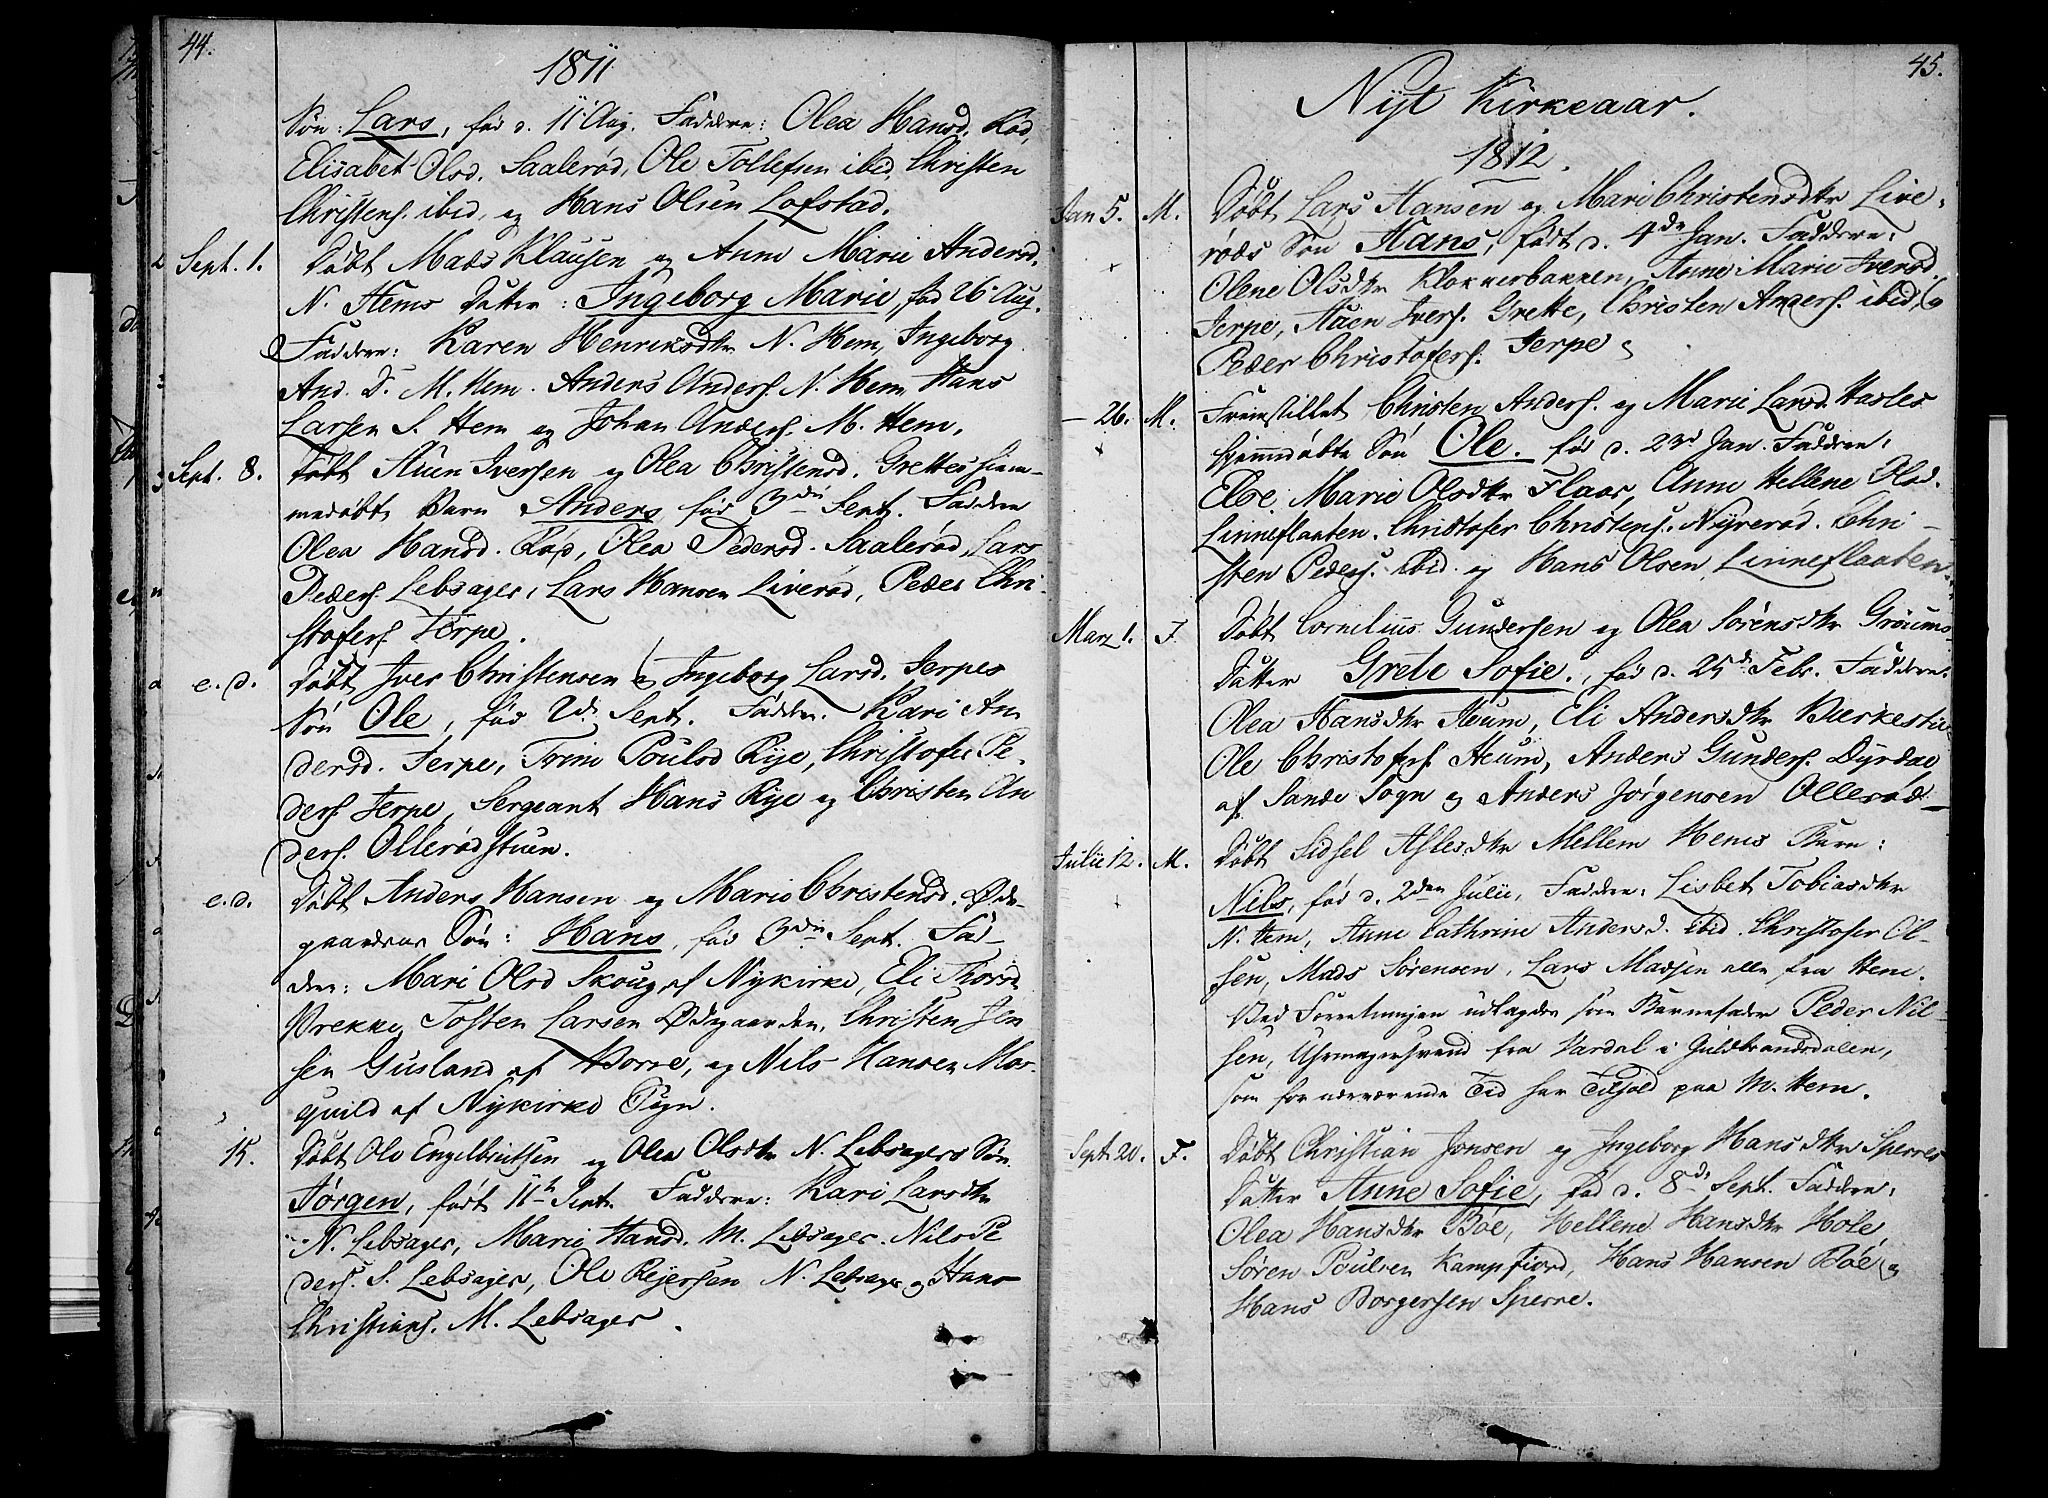 44.
1811
Søn: Lars, fød d. 11 Aug. Faddere: Olea Hansd. Rød,
Elisabet Olsd. Saalerød, Ole Tollefsen ibid. Christen
Christens. ibid, og Hans Olsen Lofstad.
Sept. 1. Døbt Mads Klausen og Anne Marie Andersd.
N. Hems Datter: Ingeborg Marie, fød 26 Aug.
Faddere: Karen Henriksdtr N. Hem, Ingeborg
And. D. M. Hem. Anders Anders. N. Hem, Hans
Larsen S. Hem og Johan Anders. M. Hem.
Sept. 8. Døbt Auen Iversen og Olea Christensd. Grettes hiem-
medøbte Barn Anders, fød 3die Sept. Faddere
Olea Hansd. Rød, Olea Pedersd. Saalerød, Lars
Peders. Lebsager, Lars Hansen Liverød, Peder Chri-
stofers. Jerpe.
e. d. Døbt Iver Christensen og Ingeborg Larsd. Jerpes
Søn Ole, fød 2d Sept. Faddere. Kari An
dersd. Jerpe, Trine Poulsd Rije, Christofer Pe-
ders. Jerpe, Sergeant Hans Rije og Christen An
ders. Ollerødstuen.
e. d. Døbt Anders Hansen og Marie Christensd. Øde-
gaardens Søn: Hans, fød 3die Sept. Fad-
dere: Mari Olsd Skoug af Nykirke, Eli Thorsd.
Vrekke, Tosten Larsen Ødegaarden, Christen Jen
sen Gusland af Borre, og Nils Hansen Mar-
quild af Nykirke Sogn.
15. Døbt Ole Engelbretsen og Olea Olsdtr N. Lebsagers Søn
Jørgen, født 11te Sept. Faddere: Kari Larsdtr
N. Lebsager, Marie Hansd. M. Lebsager. Nils Pe
ders. S. Lebsager, Ole Reijersen N. Lebsager og Hans
Christians. M. Lebsager.
45.
Nyt Kirkeaar.
1812.
Jan 5. M. Døbt Lars Hansen og Mari Christensdtr Live-
røds Søn Hans, født d. 4de Jan. Faddere:
Olene Olsdtr Klokkerbakken, Anne Marie Iversd.
Jerpe, Auen Ivers. Grette, Christen Anders. ibid, og
Peder Christofers. Jerpe.
- 26. M. Fremstillet Christen Anders. og Marie Larsd. Hasles
hjemmedøbte Søn Ole. fød d. 23d Jan. Faddere:
Else Marie Olsdtr Flaar, Anne Hellene Olsd.
Linneflaaten. Christofer Christens. Nyrerød. Chri-
sten Peders. ibid. og Hans Olsen Linneflaaten.
Marz 1. F. Døbt Cornelius Gundersen og Olea Sørensdtr Grøums
Datter Grete Sofie., fød d. 25d Febr. Faddere:
Olea Hansdtr Heum, Eli Andersdtr Birkestu
Ole Christofers. Heum, Anders Gunders. Dyrdal
af Sande Sogn og Anders Jørgensen Ollerød
Julii 12. M. Døbt Sidsel Aslesdtr Mellem Hems Barn:
Nils, fød d. 2den Julii, Faddere: Lisbet Tobiasdtr
N. Hem, Anne Cathrine Andersd. ibid. Christofer Ol-
sen, Mads Sørensen, Lars Madsen alle fra Hem.
Ved Forretningen udlagdes som Barnefader Peder Nil-
sen, Uhrmagersvend fra Vardal i Guldbrandsdalen,
som for nærværende Tid har Tilhold paa M. Hem.
Sept. 20. F. Døbt Christian Jonsen og Ingeborg Hansdtr Sperres
Datter Anne Sofie, fød d. 8de Sept. Faddere:
Olea Hansdtr Bøe, Hellene Hansdtr Hole,
Søren Poulsen Kampfiord, Hans Hansen Bøe og
Hans Borgersen Sperre.